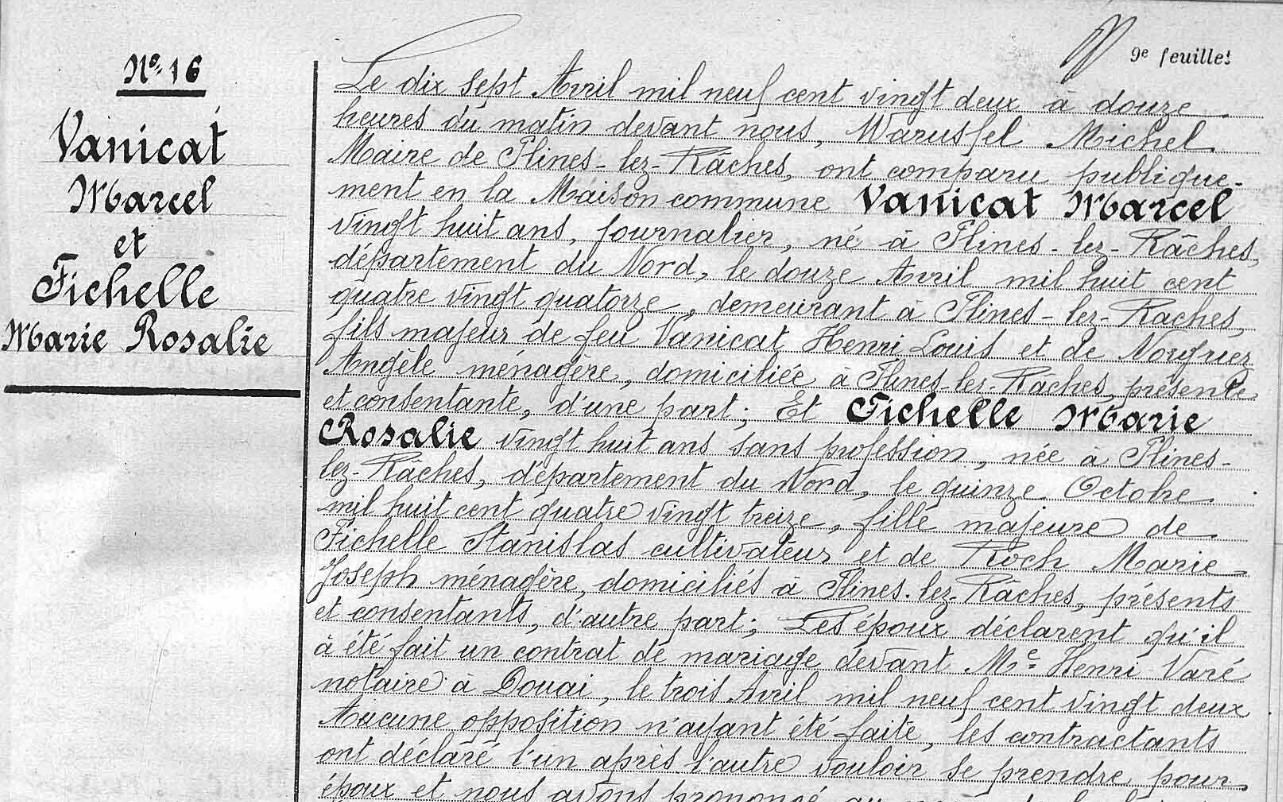 9e feuillet
Nº 16
Vanicat
Marcel
et
Fichelle
Marie Rosalie
Le dix sept Avril mil neuf cent vingt deux à douze
heures du matin devant nous, Warusfel Michel
Maire de Flines-lez-Râches, ont comparu publique-
ment en la Maison commune Vanicat Marcel
vingt huit ans, journalier, né à Flines-lez-Râches,
département du Nord, le douze Avril mil huit cent
quatre vingt quatorze, demeurant à Flines-lez-Raches,
fils majeur de feu Vanicat Henri Louis et de
Angèle ménagère, domiciliée à Flines-lez-Râches, présente
et consentante, d'une part; Et Fichelle Marie
Rosalie vingt huit ans sans profession, née à Flines-
lez-Râches, département du Nord, le quinze Octobre
mil huit cent quatre vingt treize, fille majeure de
Fichelle Stanislas cultivateur et de Roch Marie-
Joseph ménagère, domiciliés à Flines-lez-Râches, présents
et consentants, d'autre part; Les époux déclarent qu'il
à été fait un contrat de mariage devant Me Henri Varé
notaire à Douai, le trois Avril mil neuf cent vingt deux
Aucune opposition n'ayant été faite, les contractants
ont déclaré l'un après l'autre vouloir se prendre pour
époux et nous avons prononcé au